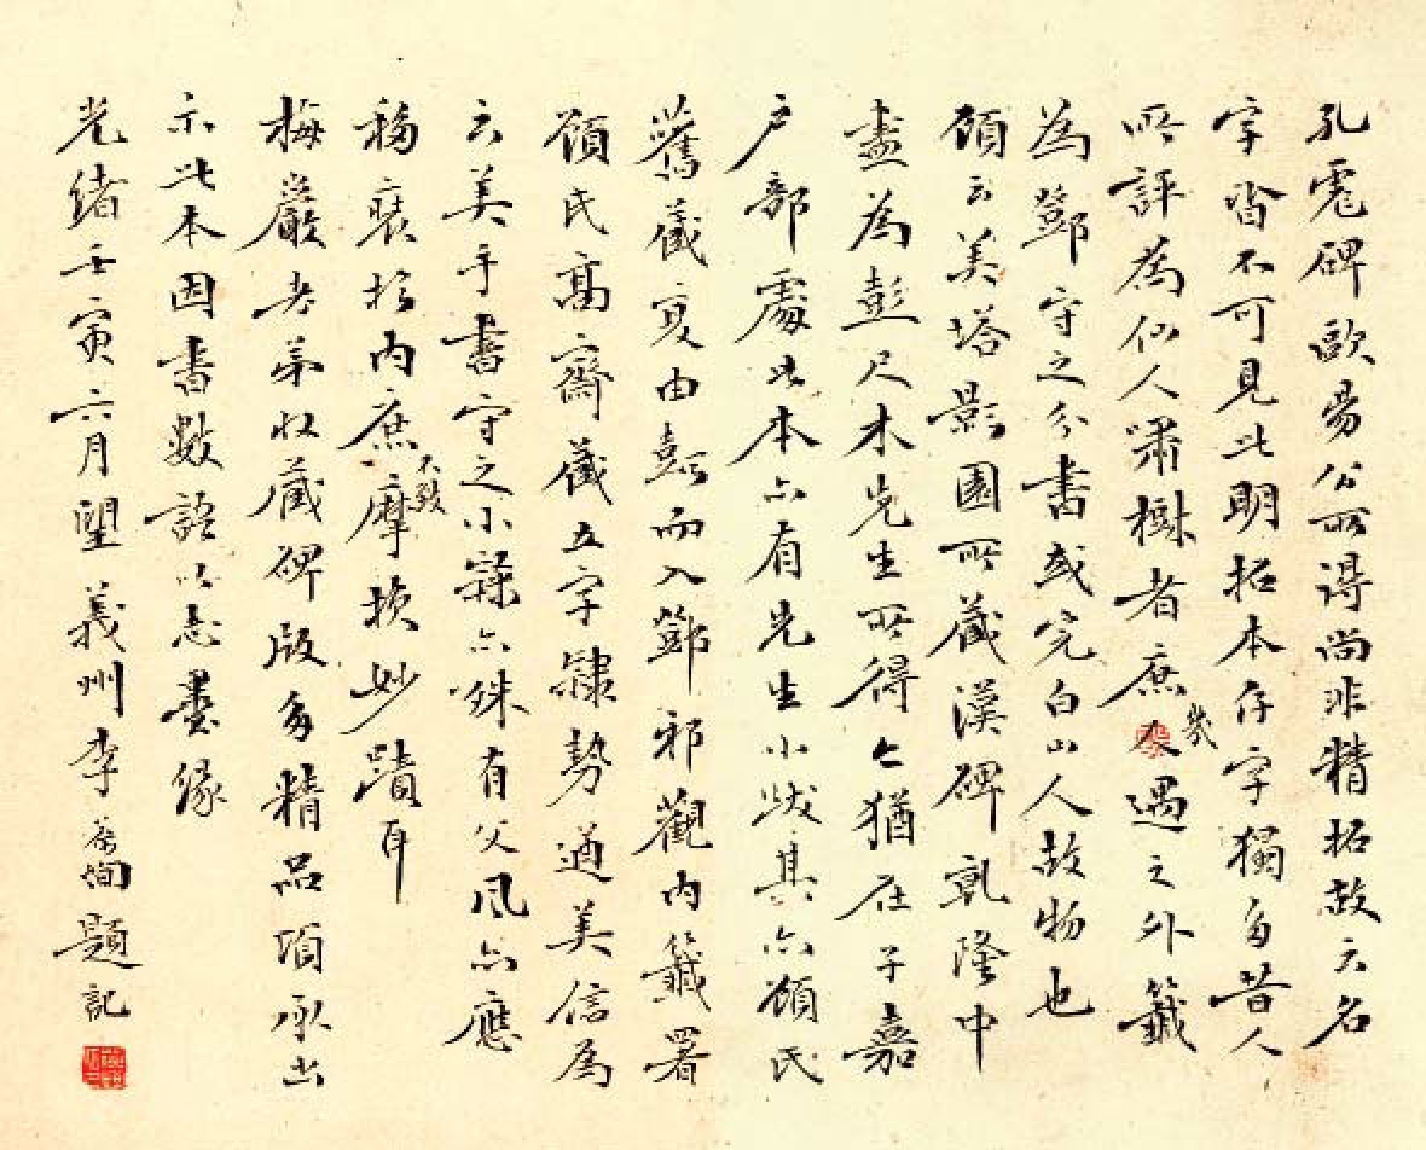 孔宙碑歐易公所得尚非精拓故云名
字皆不可見此明拓本存字獨多昔人
所評為仙人嘯樹者庶幾遇之外籤
為鄧守之分書或完白山人故物也
顧云美塔影園所藏漢碑乾隆中
盡為彭尺木先生所得今猶在子嘉
戶部處此本亦有先生小跋其亦顧氏
舊藏實由彭而入鄧邪觀內籤署
顧氏高齋藏五字隸勢遒美信為
云美手書守之小篆亦殊有父風亦應
移裝於內庶不致摩損妙蹟耳
梅巖老弟收藏碑版多精品頃承出
示此本因書數語以志墨緣
光緒壬寅六月望義州李葆恂題記